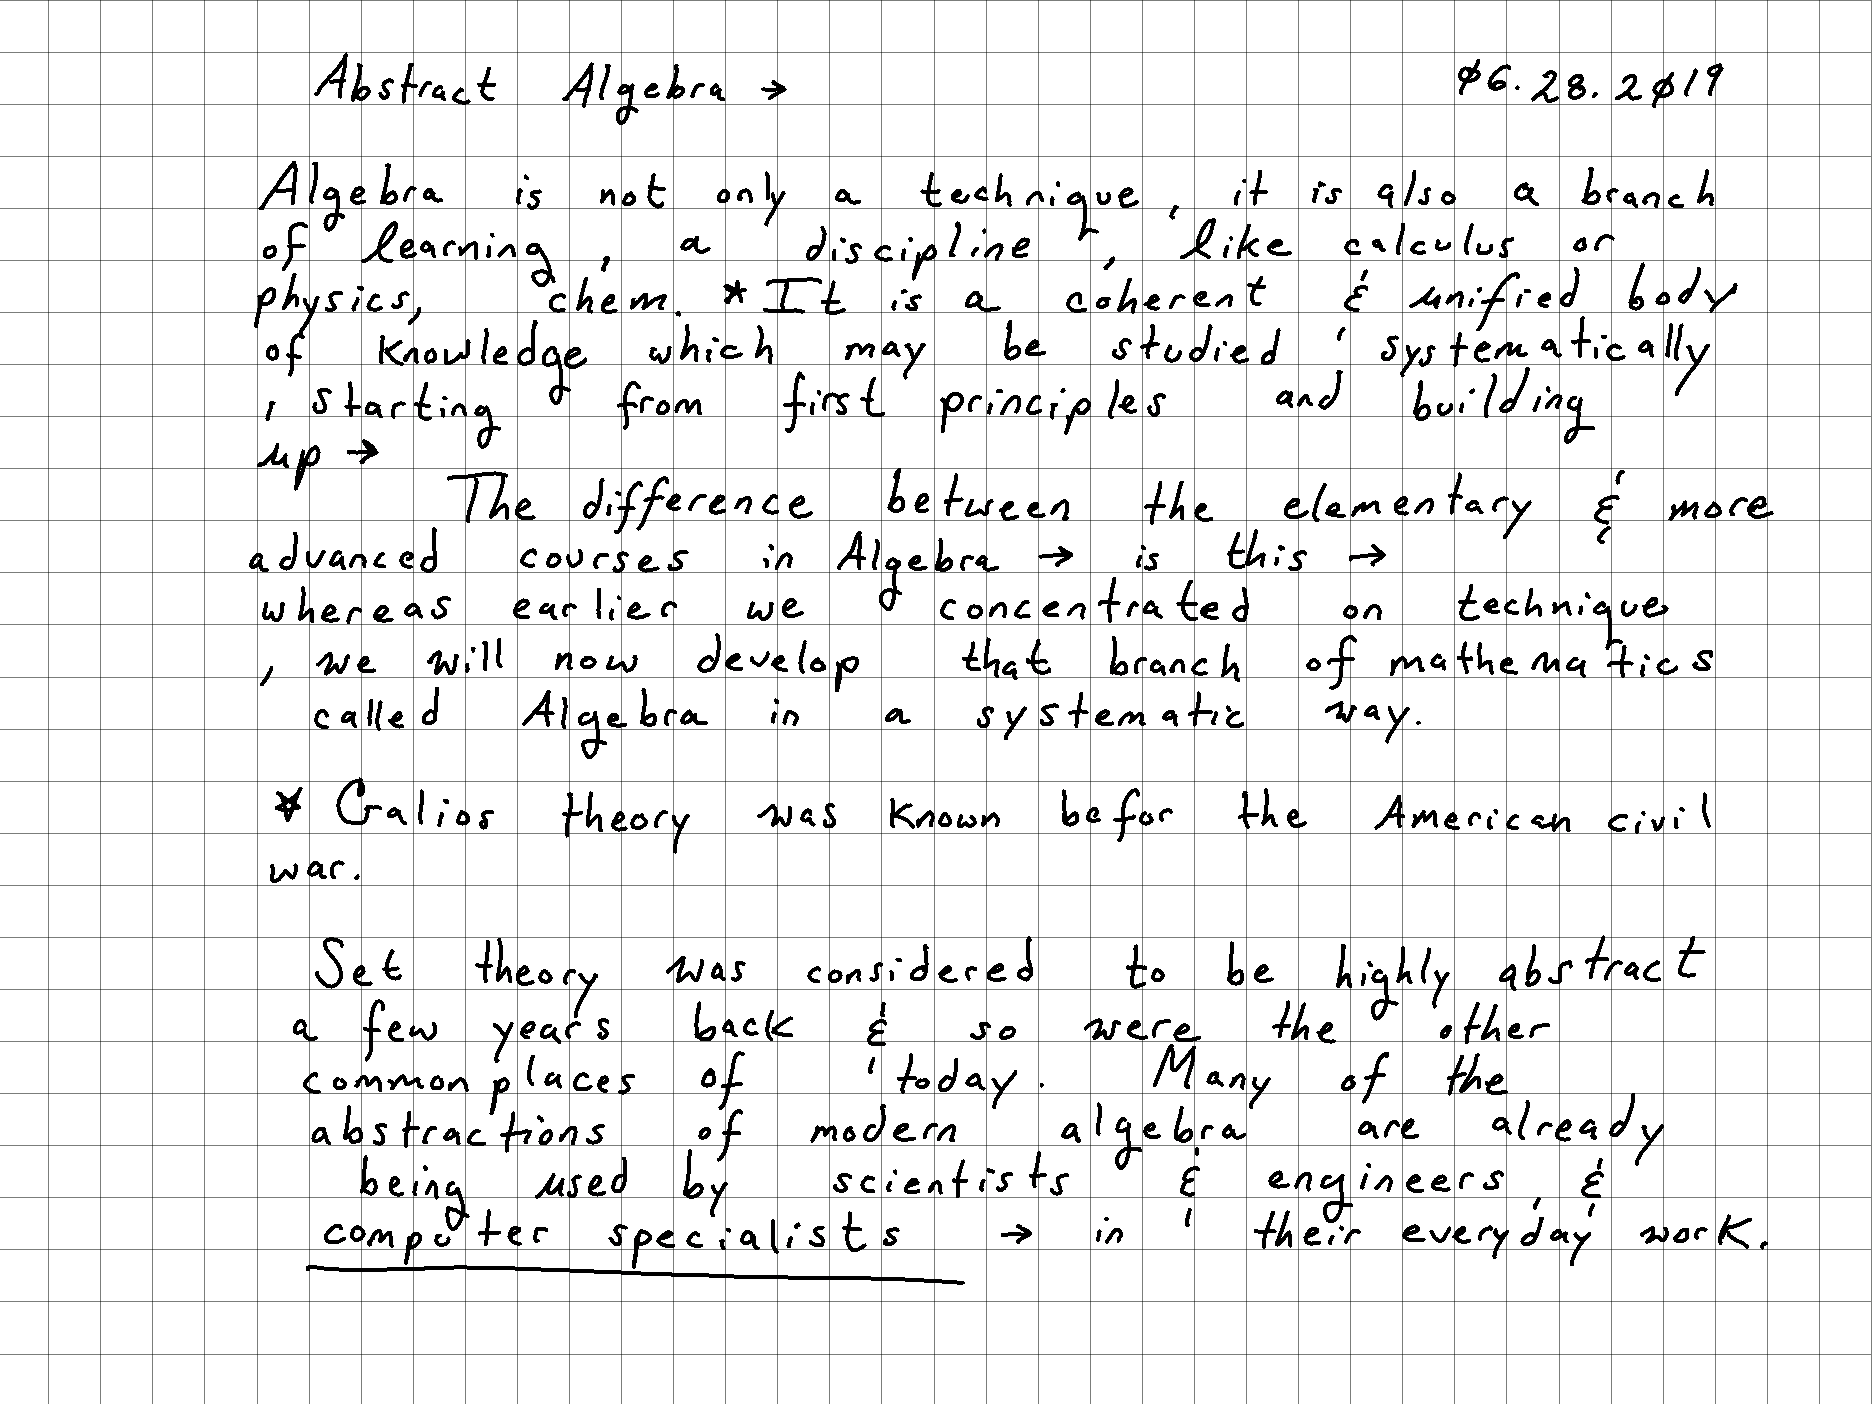 Abstract Algebra → 06.28.2019
Algebra is not only a technique, it is also a branch
of learning, a discipline, like calculus or
physics, chem. * It is a coherent & unified body
of knowledge which may be studied systematically
, starting from first principles and building
up →
The difference between the elementary & more
advanced courses in Algebra → is this →
whereas earlier we concentrated on technique
, we will now develop that branch of mathematics
called Algebra in a systematic way.
* Galios theory was known befor the American civil
war.
Set theory was considered to be highly abstract
a few years back & so were the other
common places of today. Many of the
abstractions of modern algebra are already
being used by scientists & engineers, &
computer specialists → in their everyday work.